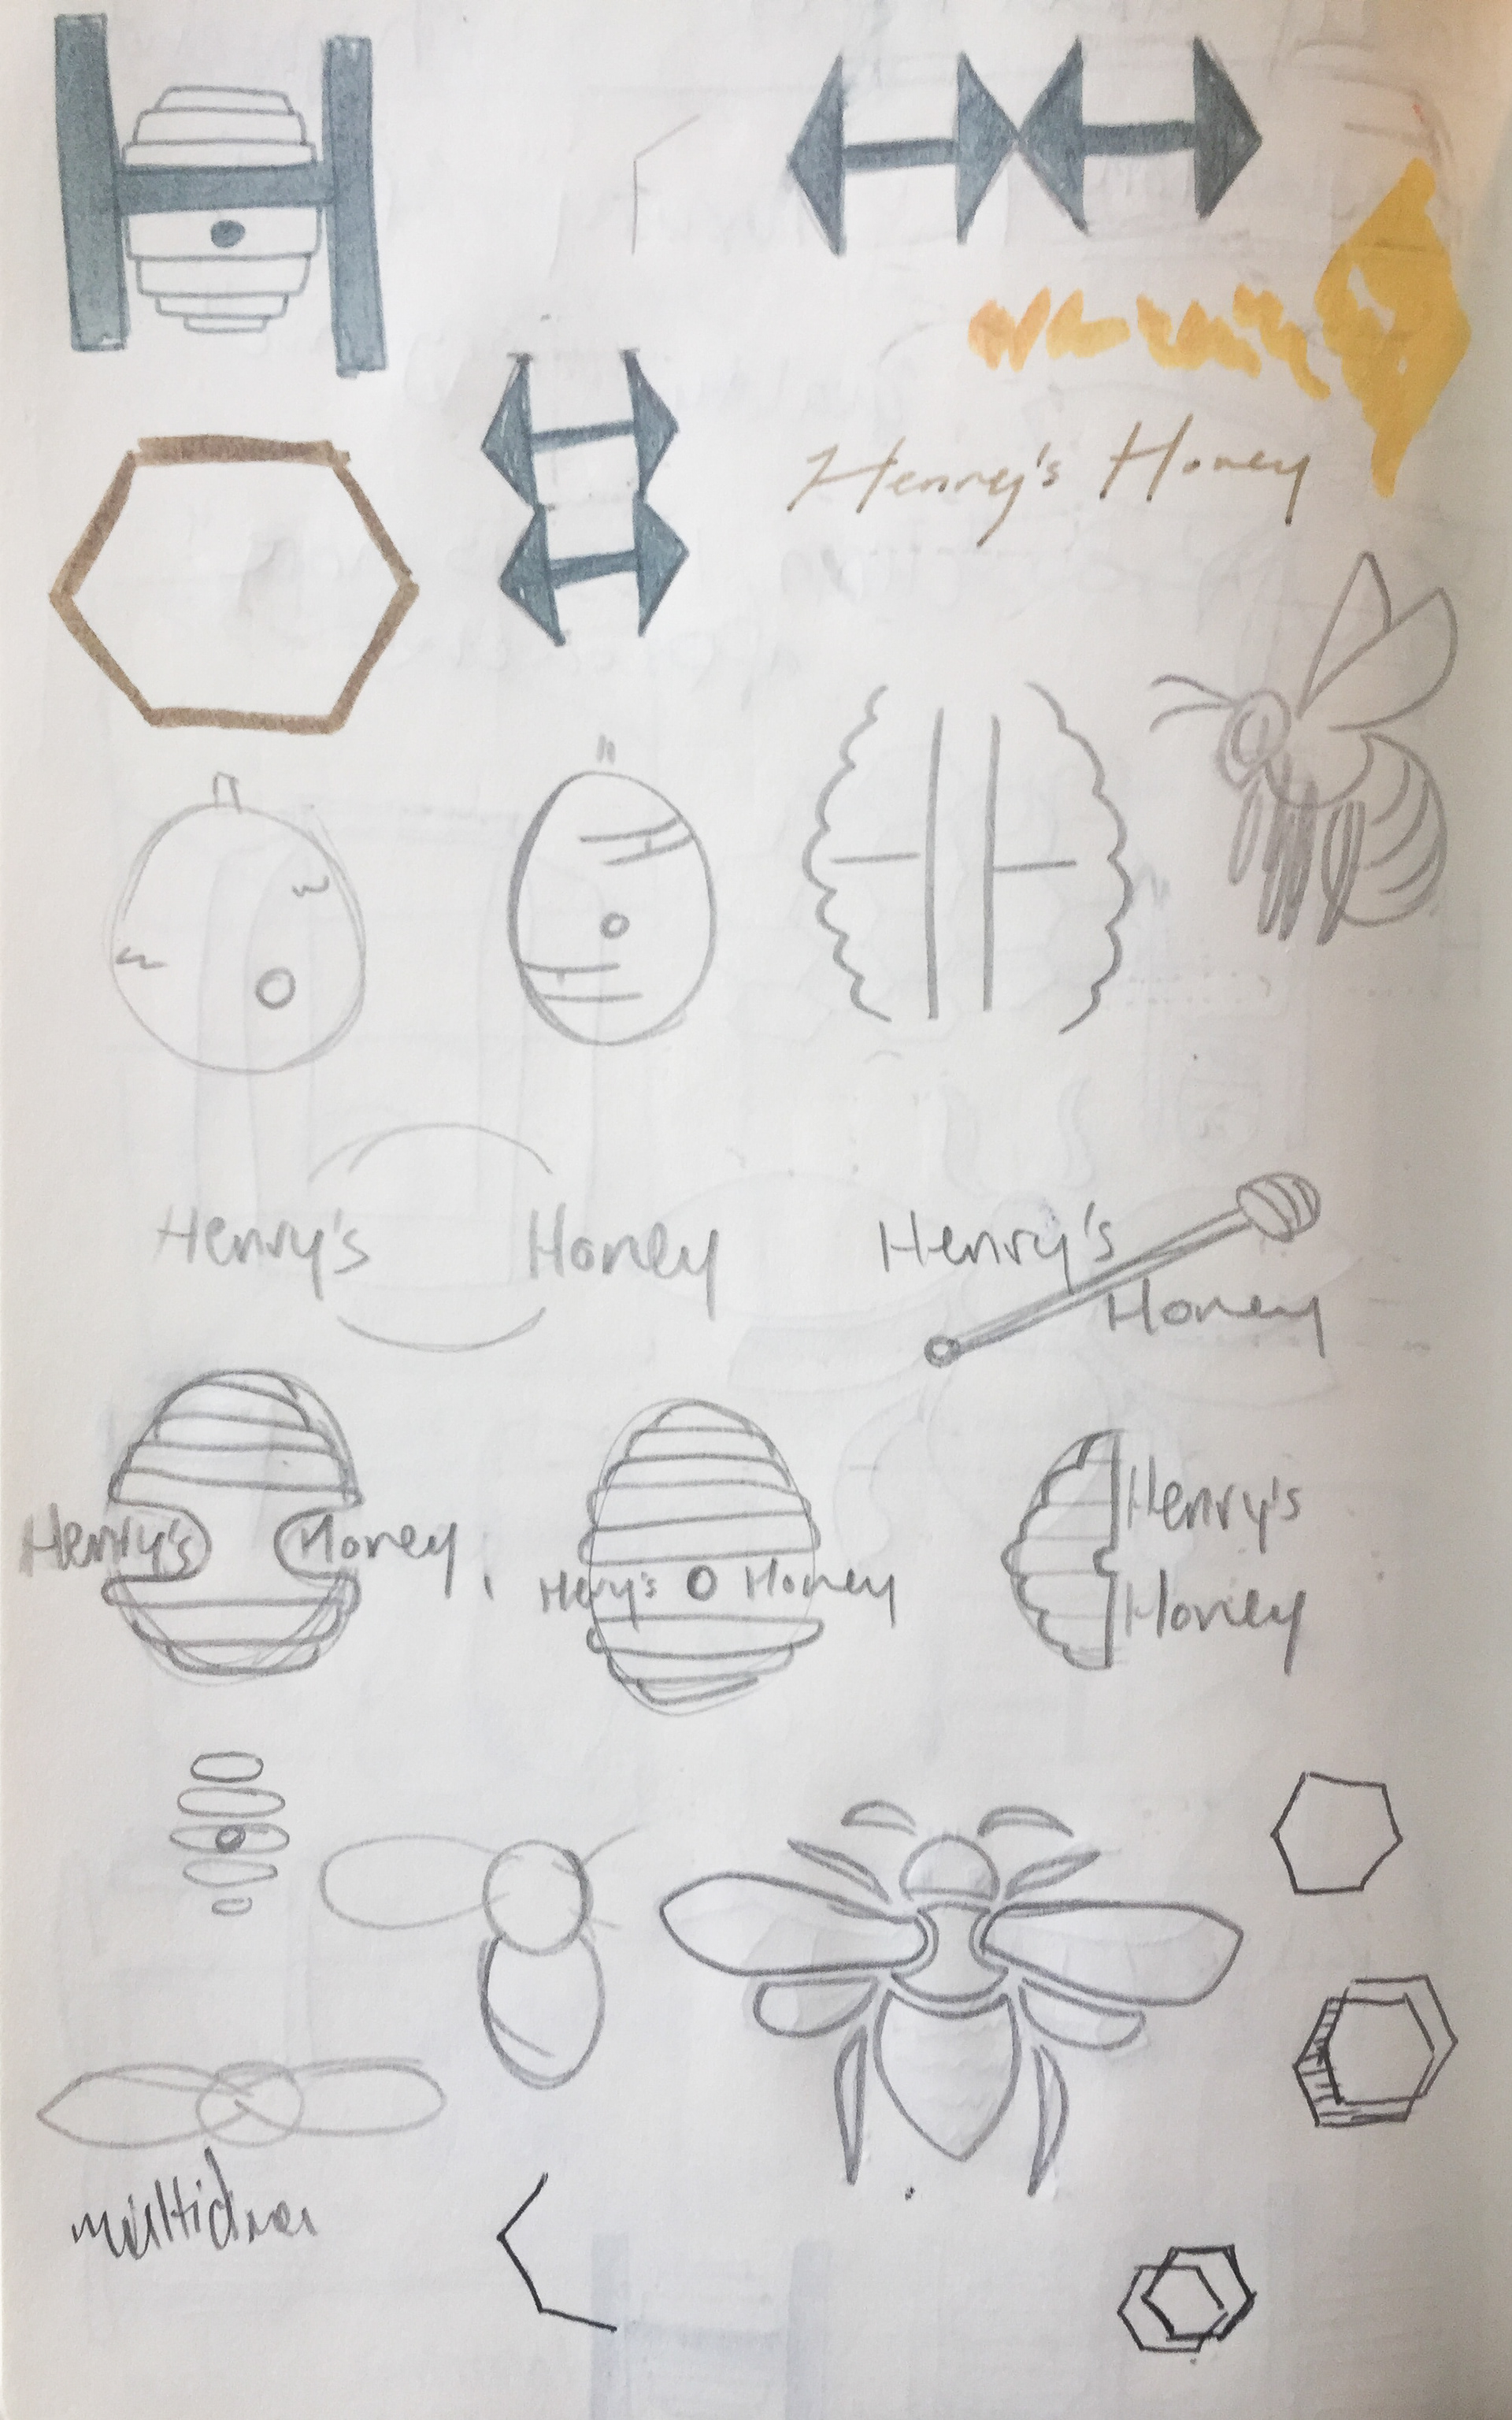 Henry's Honey
Henry's Honey
Henry's
Honey
Henry's Honey
Henry's Honey
Henry's
Honey